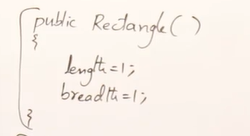 public Rectangle()
{
length=1;
breadth=1;
}